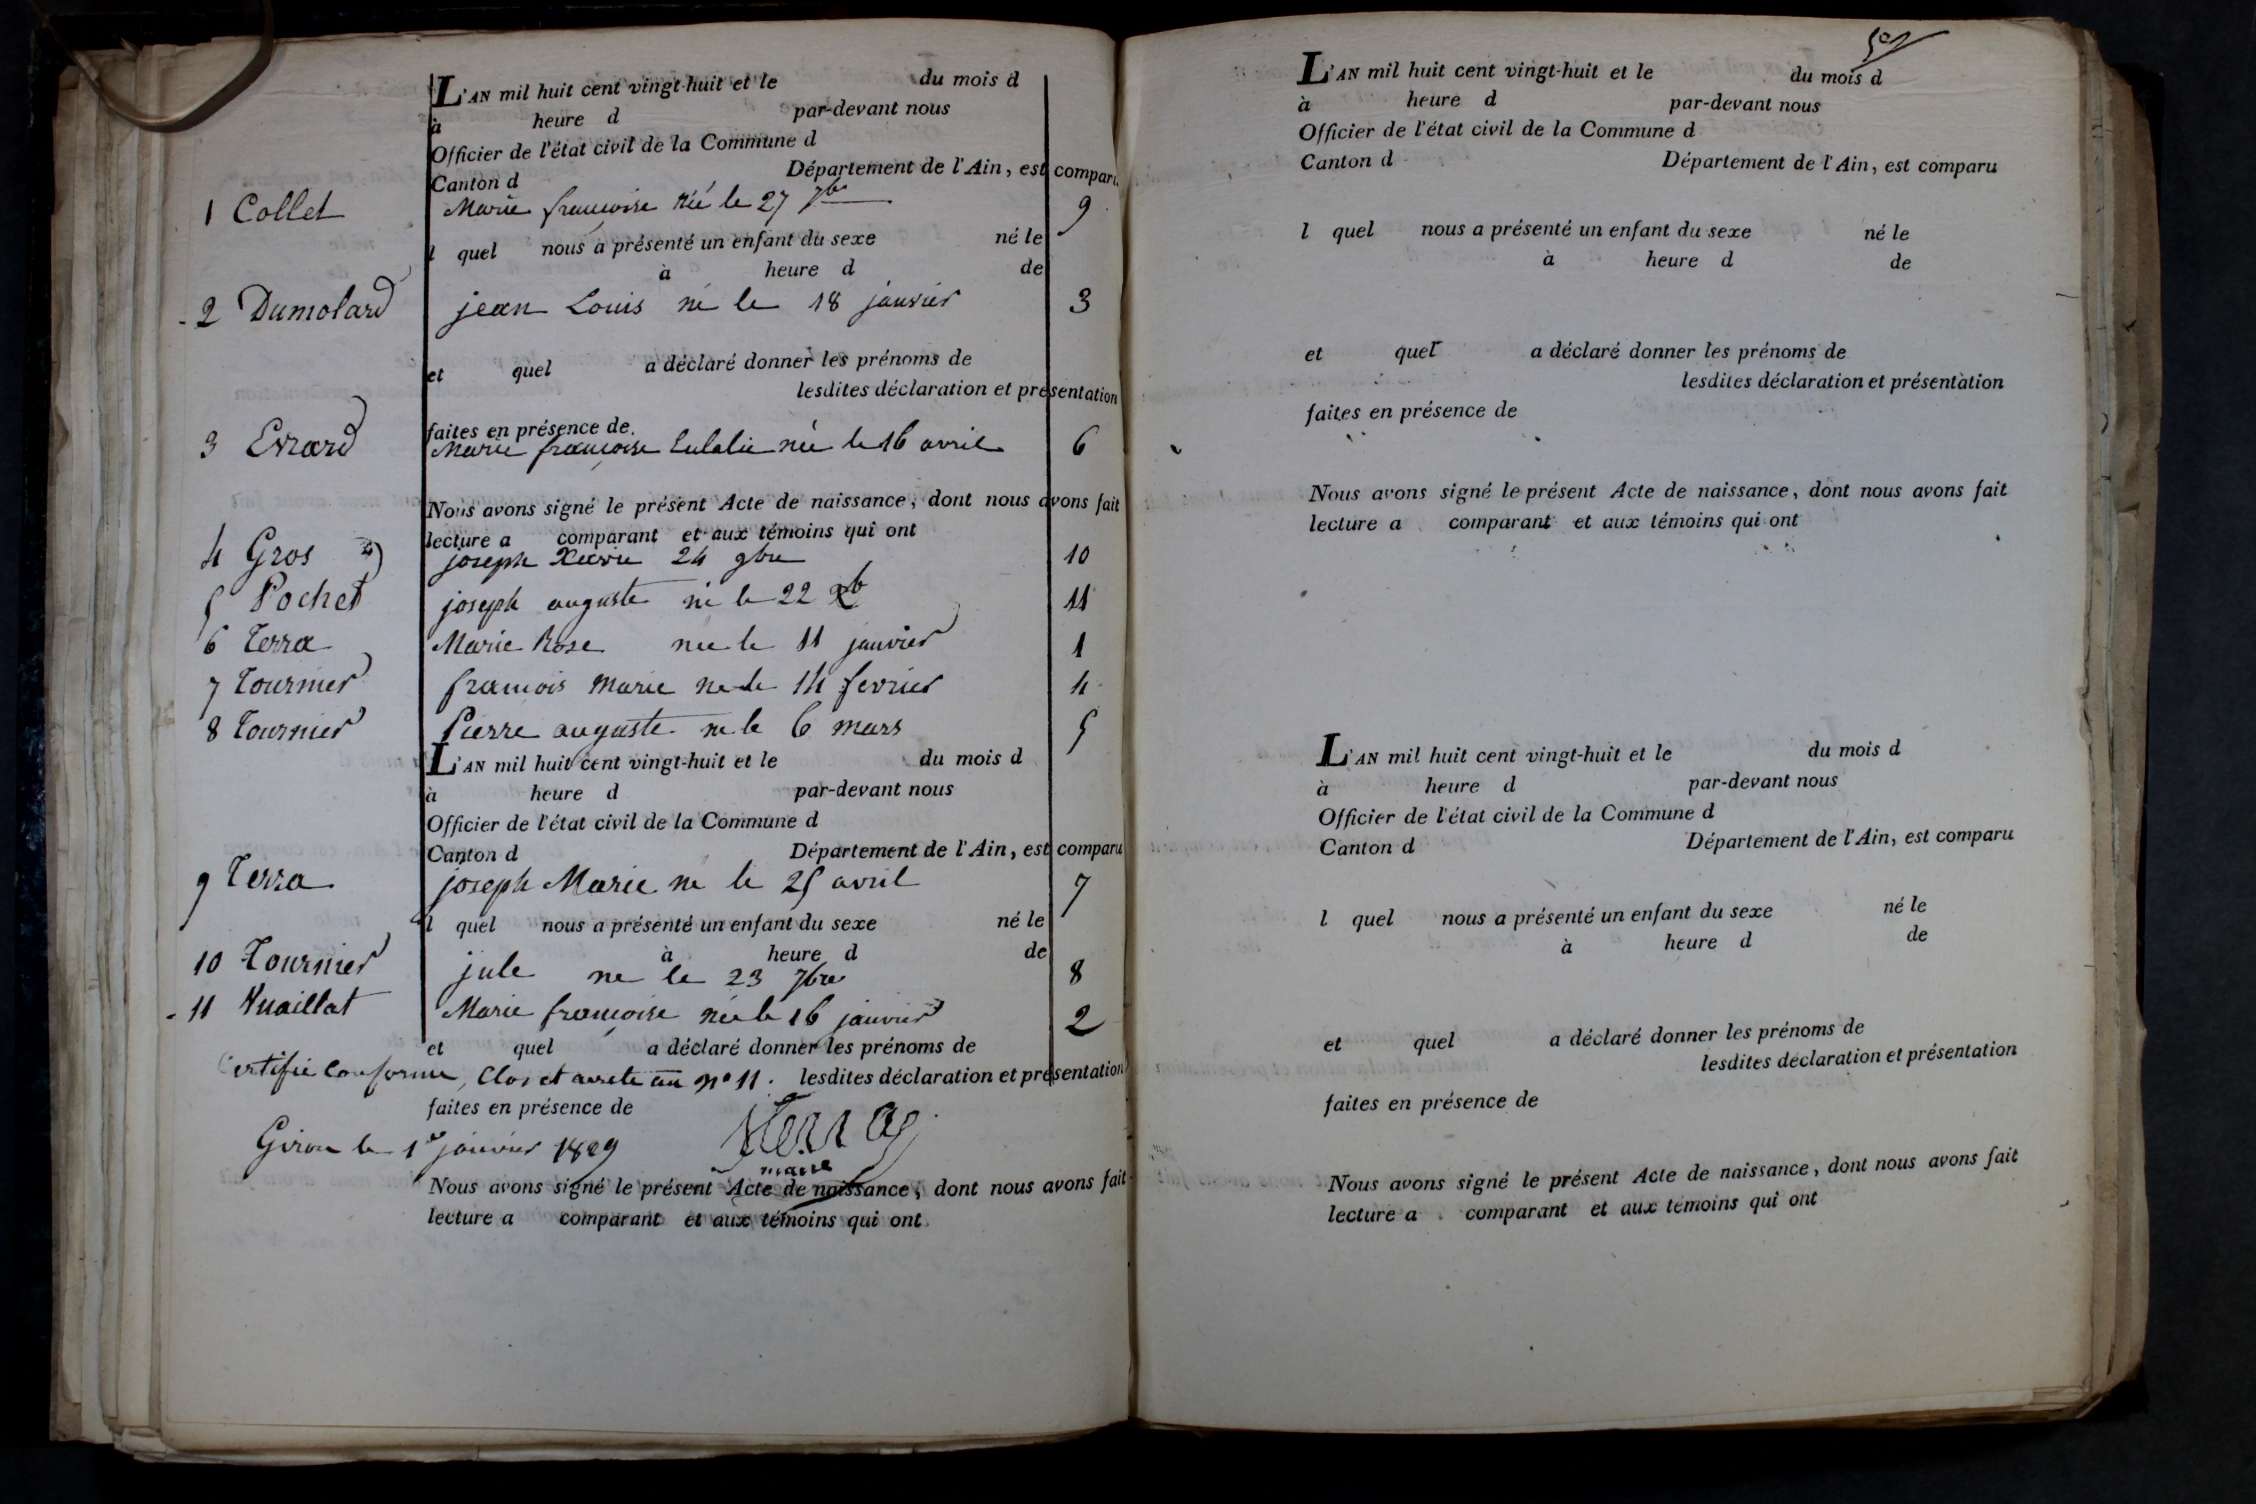 L'AN mil huit cent vingt-huit et le du mois d
à heure d par-devant nous
Officier de l'état civil de la Commune d
Canton d Département de l'Ain, est comparu
1 Collet Marie francoise née le 27 7bre 9
l quel nous a présenté un enfant du sexe né le
à heure d de
2 Dumolard jean Louis né le 18 janvier 3
et quel a déclaré donner les prénoms de
lesdites déclaration et présentation
faites en présence de
3 Evrard Marie francoise Eulalie née le 16 avril 6
Nous avons signé le présent Acte de naissance, dont nous avons fait
lecture a comparant et aux témoins qui ont
4 Gros joseph 24 9bre 10
5 Pochet joseph auguste né le 22 Xb 11
6 Terra Marie Rose née le 11 janvier 1
7 Tournier francois Marie ne le 14 fevrier 4
8 Tournier Pierre auguste ne le 6 mars 5
L'AN mil huit cent vingt-huit et le du mois d
à heure d par-devant nous
Officier de l'état civil de la Commune d
Canton d Département de l'Ain, est comparu
9 Terra joseph Marie ne le 25 avril 7
l quel nous a présenté un enfant du sexe né le
à heure d de
10 Tournier jule ne le 23 7bre 8
11 Vuaillat Marie francoise née le 16 janvier 2
et quel a déclaré donner les prénoms de
Certifié conforme, Clos et arreté au n° 11. lesdites déclaration et présentation
faites en présence de
Giron le 1er janvier 1829 Terraz
maire
Nous avons signé le présent Acte de naissance, dont nous avons fait
lecture a comparant et aux témoins qui ont
L'AN mil huit cent vingt-huit et le du mois d
à heure d par-devant nous
Officier de l'état civil de la Commune d
Canton d Département de l'Ain, est comparu
l quel nous a présenté un enfant du sexe né le
à heure d de
et quel a déclaré donner les prénoms de
lesdites déclaration et présentation
faites en présence de
Nous avons signé le présent Acte de naissance, dont nous avons fait
lecture a comparant et aux témoins qui ont
L'AN mil huit cent vingt-huit et le du mois d
à heure d par-devant nous
Officier de l'état civil de la Commune d
Canton d Département de l'Ain, est comparu
l quel nous a présenté un enfant du sexe né le
à heure d de
et quel a déclaré donner les prénoms de
lesdites déclaration et présentation
faites en présence de
Nous avons signé le présent Acte de naissance, dont nous avons fait
lecture a comparant et aux témoins qui ont